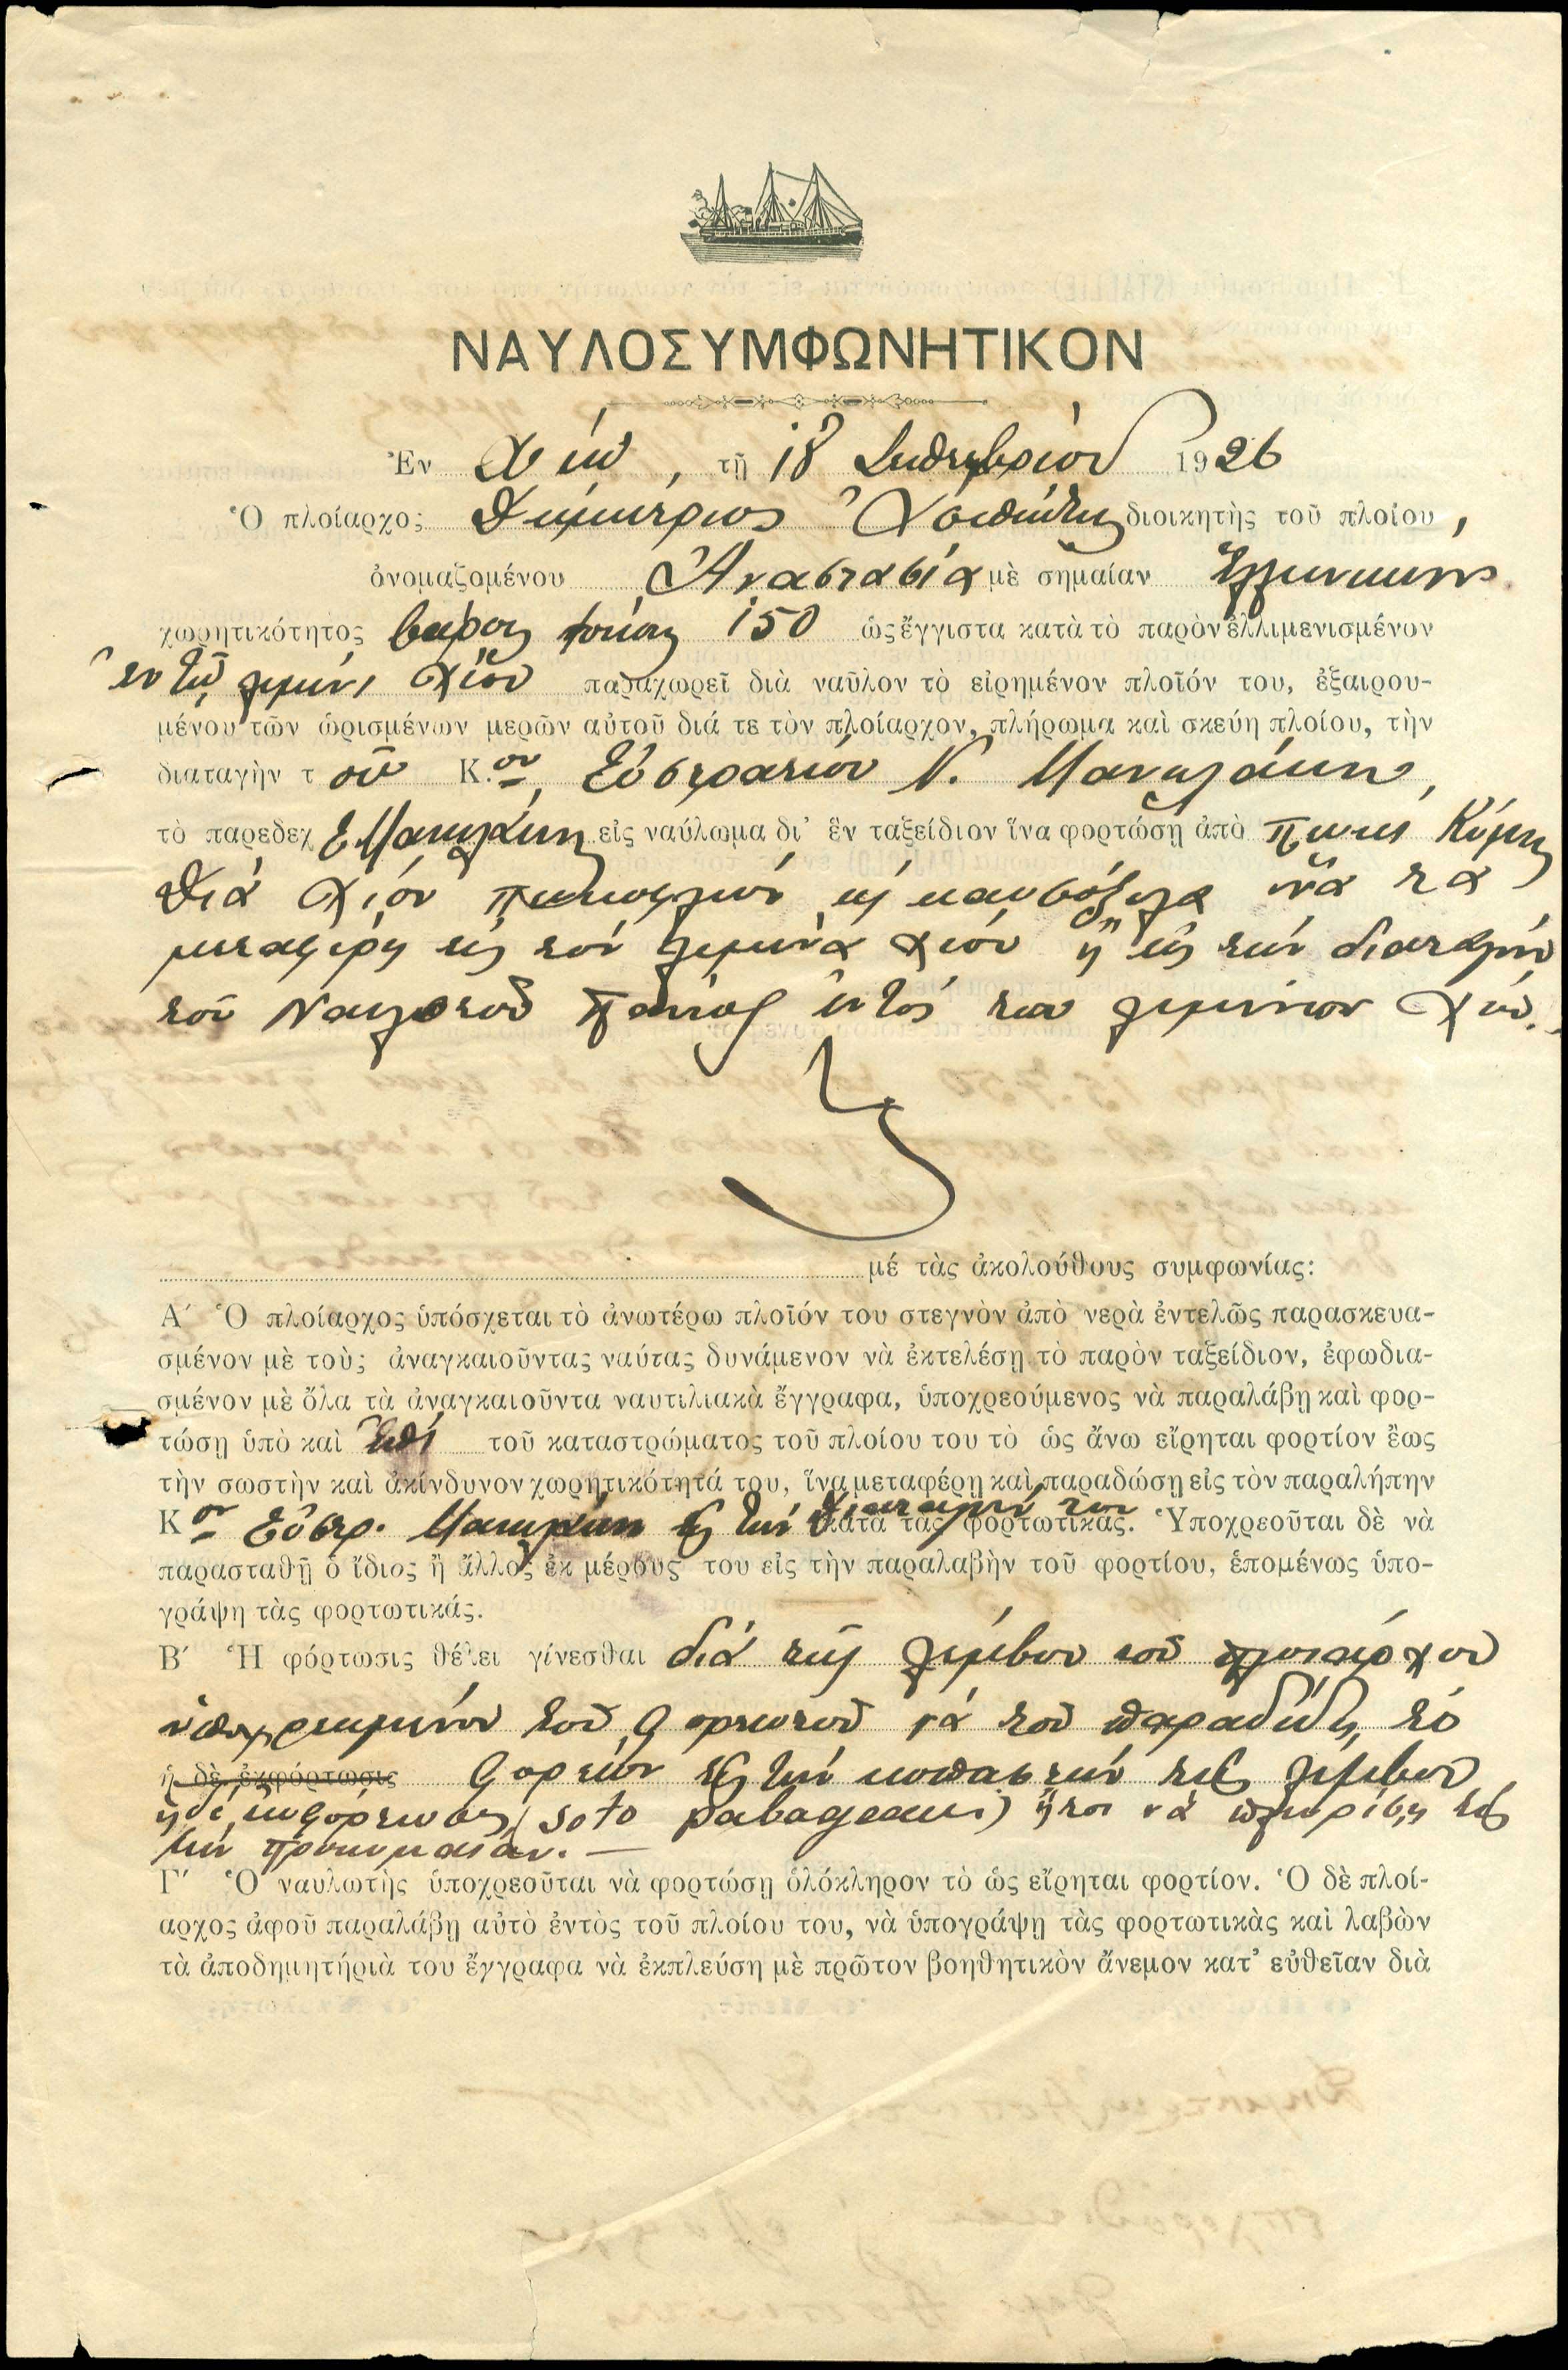 ΝΑΥΛΟΣΥΜΦΩΝΗΤΙΚΟΝ
Ἐν Χίῳ, τῇ 18 Σεπτεμβρίου 1926
Ὁ πλοίαρχος Δημήτριος διοικητὴς τοῦ πλοίου,
ὀνομαζομένου Ἀναστασία μὲ σημαίαν Ἑλληνικὴν
χωρητικότητος βάρους τόνων 150 ὡς ἔγγιστα κατὰ τὸ παρὸν ἐλλιμενισμένον
ἐν τῷ λιμένι Χίου παραχωρεῖ διὰ ναῦλον τὸ εἰρημένον πλοῖόν του, ἐξαιρου-
μένου τῶν ὡρισμένων μερῶν αὐτοῦ διά τε τὸν πλοίαρχον, πλήρωμα καὶ σκεύη πλοίου, τὴν
διαταγὴν τοῦ Κ.ου Εὐστρατίου Ν. Μανωλάκη,
τὸ παρεδεχ Ε Μανωλάκης εἰς ναύλωμα δι' ἓν ταξείδιον ἵνα φορτώσῃ ἀπὸ Κύμης
διὰ Χίον καυσόξυλα ἵνα τὰ
μεταφέρῃ εἰς τὸν λιμένα Χίου ἢ εἰς τὴν διαταγὴν
τοῦ Ναυλωτοῦ πάντως ἐντὸς τοῦ λιμένος Χίου.
μέ τὰς ἀκολούθους συμφωνίας:
Α΄ Ὁ πλοίαρχος ὑπόσχεται τὸ ἀνωτέρω πλοῖόν του στεγνὸν ἀπὸ νερὰ ἐντελῶς παρασκευα-
σμένον μὲ τοὺς ἀναγκαιοῦντας ναύτας δυνάμενον νὰ ἐκτελέσῃ τὸ παρὸν ταξείδιον, ἐφωδια-
σμένον μὲ ὅλα τὰ ἀναγκαιοῦντα ναυτιλιακὰ ἔγγραφα, ὑποχρεούμενος νὰ παραλάβῃ καὶ φορ-
τώσῃ ὑπὸ καὶ ἐπὶ τοῦ καταστρώματος τοῦ πλοίου του τὸ ὡς ἄνω εἴρηται φορτίον ἕως
τὴν σωστὴν καὶ ἀκίνδυνον χωρητικότητά του, ἵνα μεταφέρῃ καὶ παραδώσῃ εἰς τὸν παραλήπην
Κον Εὐστρ. Μανωλάκην ἢ τὴν διαταγήν του κατὰ τὰς φορτωτικάς. Ὑποχρεοῦται δὲ νὰ
παρασταθῇ ὁ ἴδιος ἢ ἄλλος ἐκ μέρους του εἰς τὴν παραλαβὴν τοῦ φορτίου, ἑπομένως ὑπο-
γράψῃ τὰς φορτωτικάς.
Β΄ Ἡ φόρτωσις θέλει γίνεσθαι διὰ τῆς λέμβου τοῦ πλοιάρχου
ὑποχρεωμένου τοῦ φορτωτοῦ νὰ τοῦ παραδίδῃ τὸ
ἡ δὲ ἐκφόρτωσις φορτίον εἰς τὴν κουπαστὴν τῆς λέμβου
ἡ δὲ ἐκφόρτωσις ἤτοι νὰ εἰς
τὴν προκυμαίαν. —
Γ΄ Ὁ ναυλωτὴς ὑποχρεοῦται νὰ φορτώσῃ ὁλόκληρον τὸ ὡς εἴρηται φορτίον. Ὁ δὲ πλοί-
αρχος ἀφοῦ παραλάβῃ αὐτὸ ἐντὸς τοῦ πλοίου του, νὰ ὑπογράψῃ τὰς φορτωτικὰς καὶ λαβὼν
τὰ ἀποδημητήριὰ του ἔγγραφα νὰ ἐκπλεύσῃ μὲ πρῶτον βοηθητικὸν ἄνεμον κατ' εὐθεῖαν διὰ